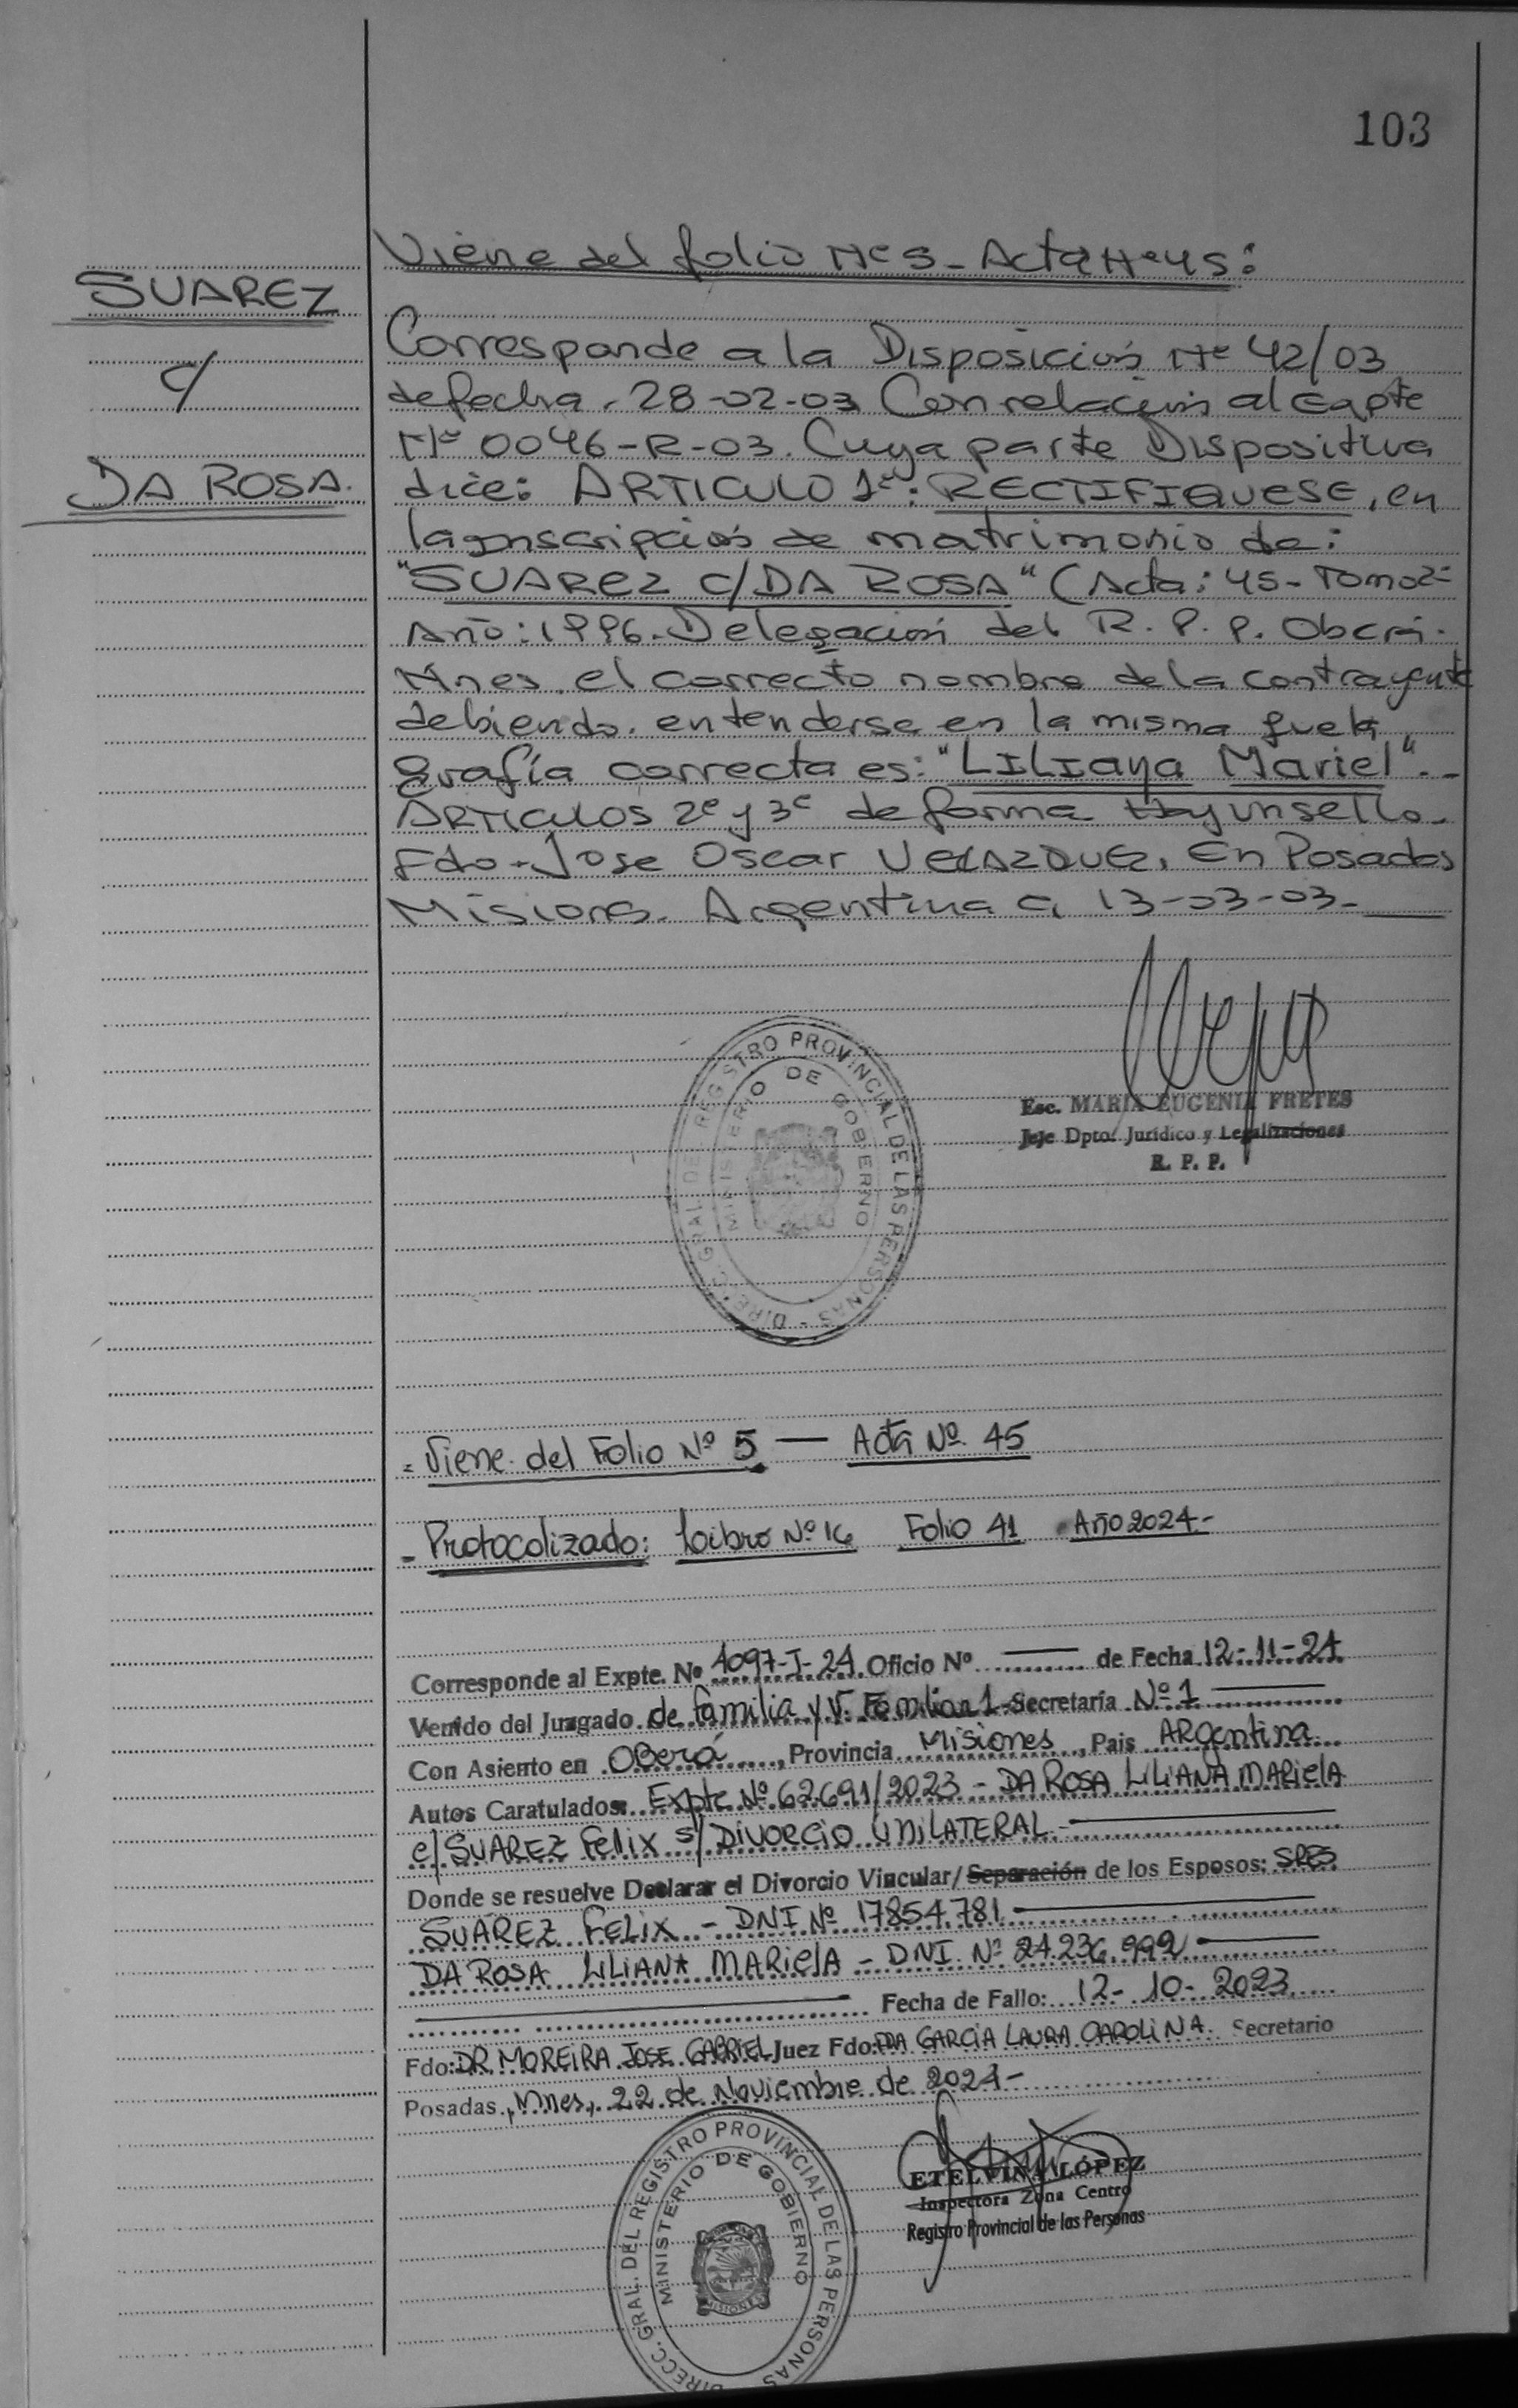 103
SUAREZ
c/
DA ROSA.
Viene del folio Nº 5 - Acta Nº 45:
Corresponde a la Disposición Nº 42/03
de fecha. 28-02-03 Con relación al Expte
Nº 0046-R-03. Cuya parte Dispositiva
dice: ARTICULO 1º: RECTIFIQUESE, en
la inscripción de matrimonio de:
"SUAREZ C/ DA ROSA" (Acta: 45- Tomo 2º
Año: 1996. Delegación del R. P. P. Oberá.
Mnes. el correcto nombre de la contrayente
debiendo. entenderse en la misma que la
grafía correcta es: "LILIANA Mariel".-
ARTICULOS 2º y 3º de forma Hay un sello.
Fdo- Jose Oscar VELAZQUEZ. En Posadas
Misiones. Argentina a 13-03-03-
DIRECC. GRAL. DEL REGISTRO PROVINCIAL DE LAS PERSONAS -
MINISTERIO DE GOBIERNO
Esc. MARIA EUGENIA FRETES
Jefe Dpto. Jurídico y Legalizaciones
R. P. P.
- Viene del Folio Nº 5 — Acta Nº 45
- Protocolizado: Libro Nº 16 Folio 41 Año 2024-
Corresponde al Expte. Nº 4097-I-24 Oficio Nº de Fecha 12-11-24
Venido del Juzgado de familia y V. Familiar 1 Secretaría Nº 1
Con Asiento en OBerá, Provincia Misiones, Pais ARgentina
Autos Caratulados: Expte Nº 62691/2023 - DA ROSA LILIANA MARIELA
c/ SUAREZ FELIX s/ DIVORCIO UNILATERAL.-
Donde se resuelve Declarar el Divorcio Vincular/Separación de los Esposos: SRES
SUÁREZ FELIX - DNI Nº 17854.781
DA ROSA LILIANA MARIELA - DNI Nº 24.236.992
Fecha de Fallo: 12-10-2023
Fdo: DR MOREIRA JOSE GABRIEL Juez Fdo: DRA GARCIA LAURA CAROLINA. Secretario
Posadas, Mnes, 22 de Noviembre de 2024-
DIRECC. GRAL. DEL REGISTRO PROVINCIAL DE LAS PERSONAS
MINISTERIO DE GOBIERNO
MISIONES
ETELVINA LÓPEZ
Inspectora Zona Centro
Registro Provincial de las Personas